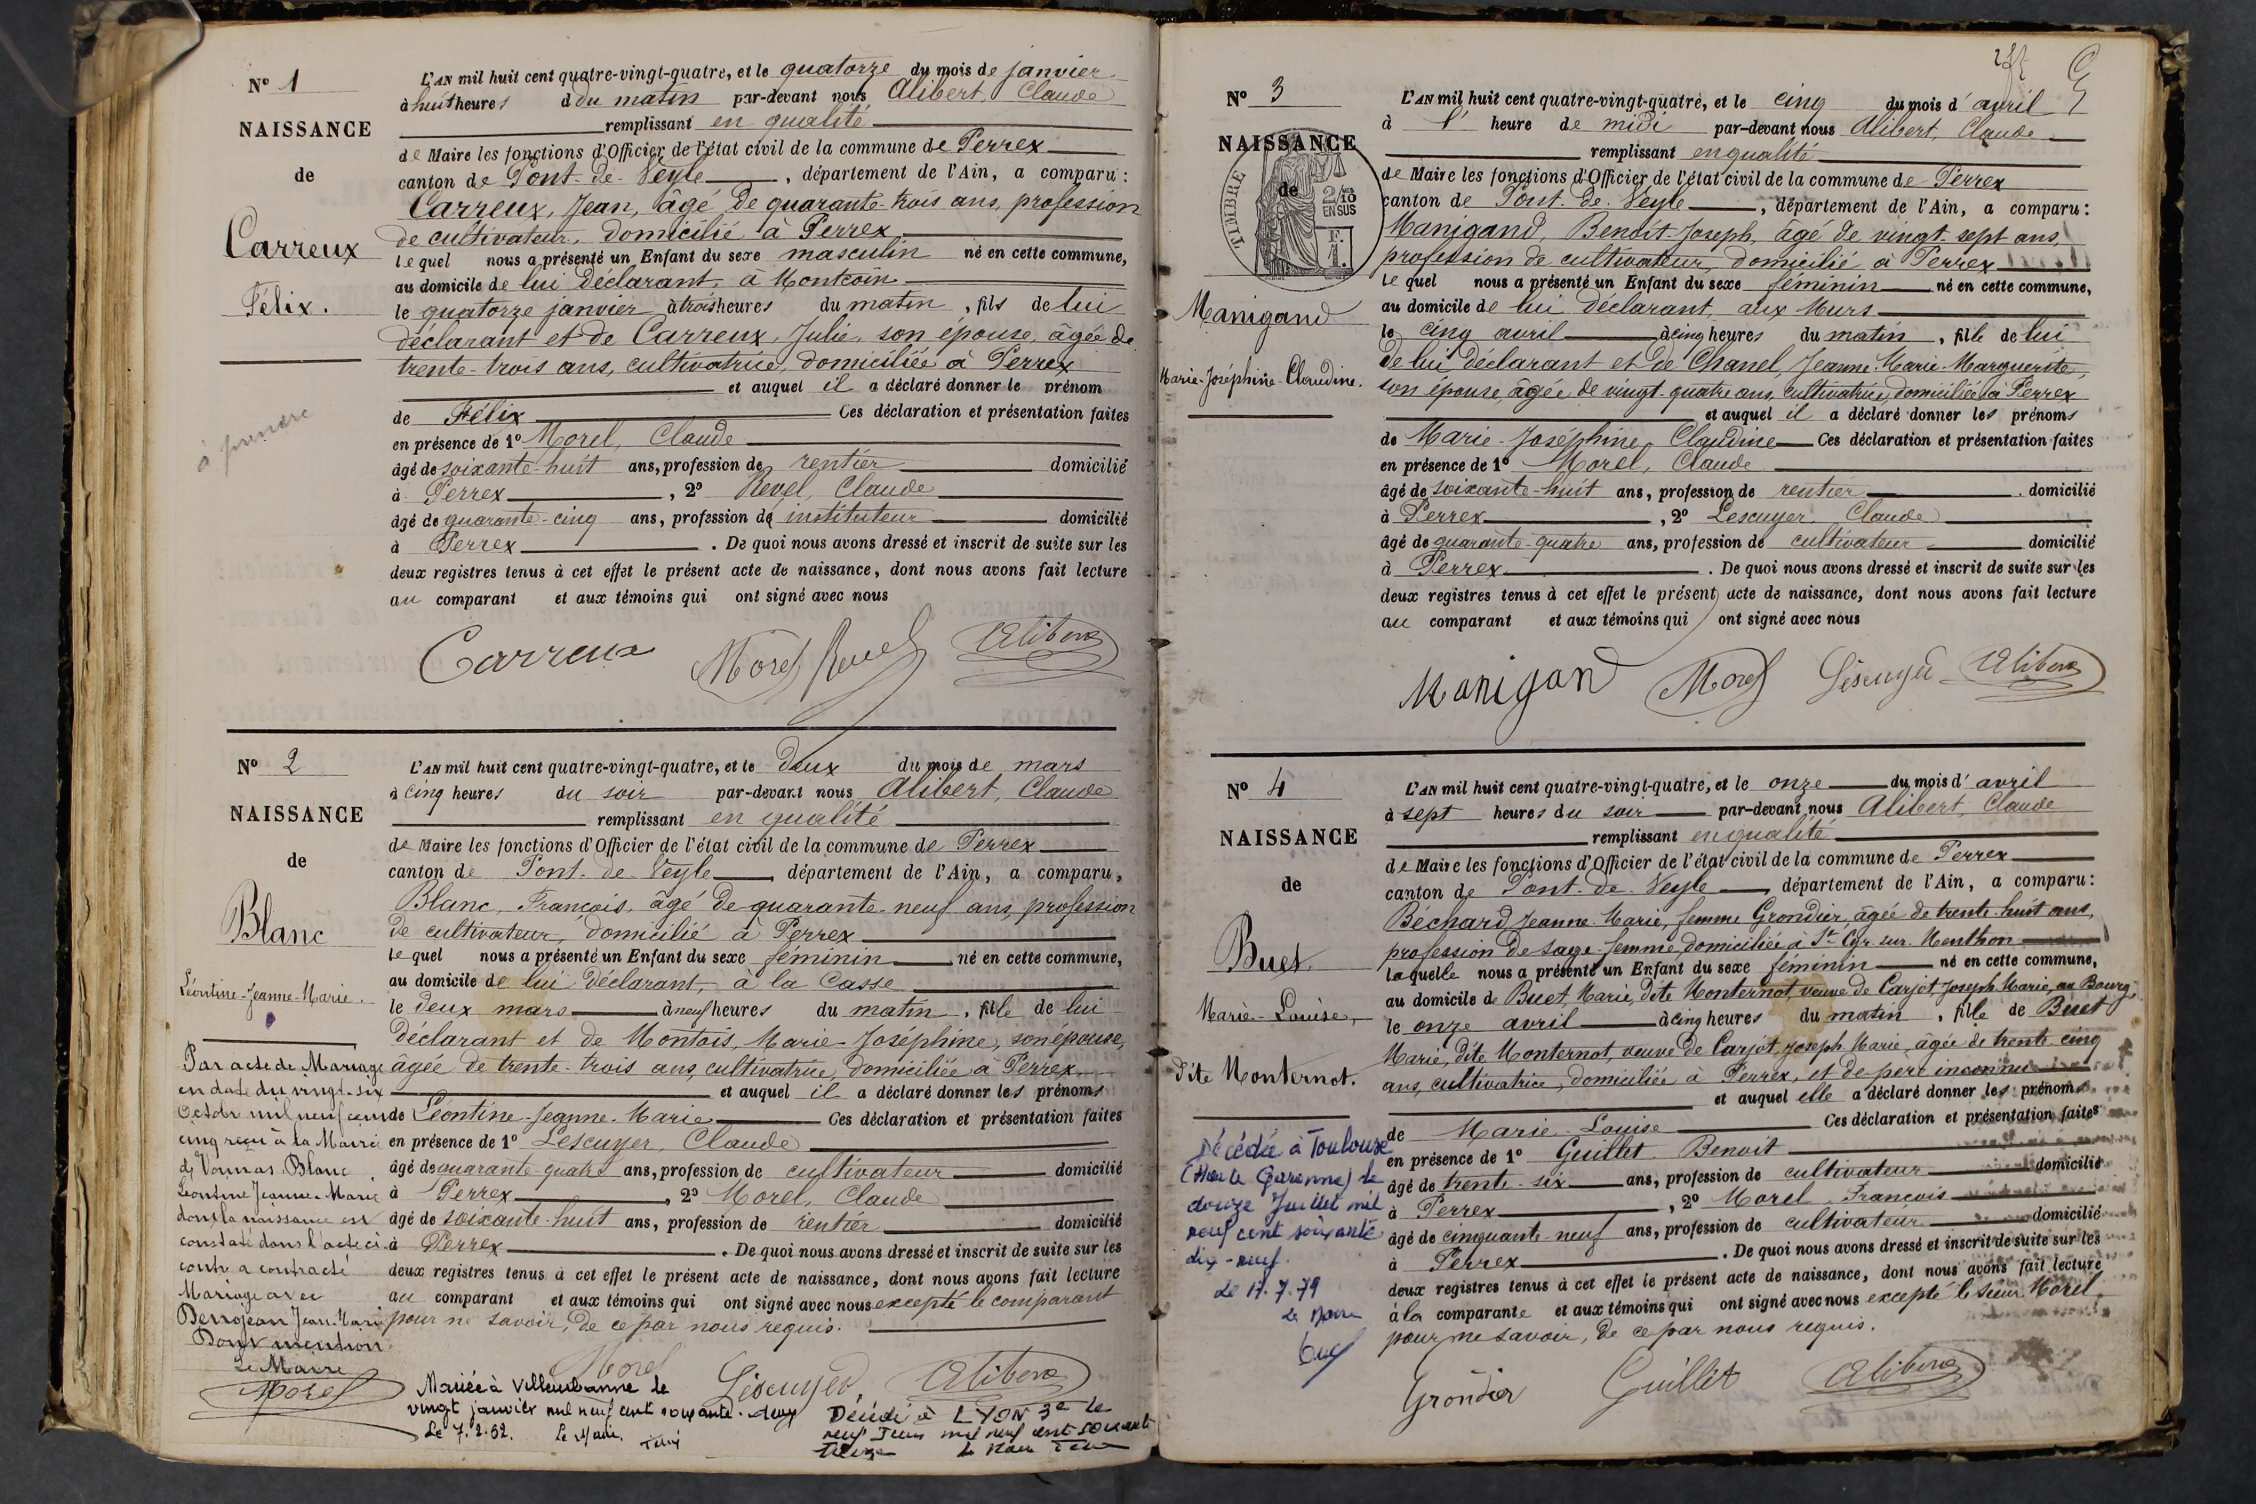 Nº 1
NAISSANCE
de
Carreux
Félix.
à prendre
L'AN mil huit cent quatre-vingt-quatre, et le quatorze du mois de janvier
à huit heures du matin par-devant nous Alibert, Claude
remplissant en qualité
de Maire les fonctions d'Officier de l'état civil de la commune de Perrex
canton de Pont-de-Veyle, département de l'Ain, a comparu :
Carreux, Jean, âgé de quarante-trois ans, profession
de cultivateur, domicilié à Perrex
lequel nous a présenté un Enfant du sexe masculin né en cette commune,
au domicile de lui déclarant, à Montcoin
le quatorze janvier à trois heures du matin, fils de lui
déclarant et de Carreux, Julie, son épouse, âgée de
trente-trois ans, cultivatrice, domiciliée à Perrex
et auquel il a déclaré donner le prénom
de Félix Ces déclaration et présentation faites
en présence de 1º Morel, Claude
âgé de soixante-huit ans, profession de rentier domicilié
à Perrex, 2º Revel, Claude
âgé de quarante-cinq ans, profession de instituteur domicilié
à Perrex. De quoi nous avons dressé et inscrit de suite sur les
deux registres tenus à cet effet le présent acte de naissance, dont nous avons fait lecture
au comparant et aux témoins qui ont signé avec nous
Carreux Morel Revel Alibert
Nº 2
NAISSANCE
de
Blanc
Léontine-Jeanne-Marie.
Par acte de Mariage
en date du vingt-six
Octobre mil neuf cent
cinq reçu à la Mairie
de Vonnas. Blanc
Léontine Jeanne-Marie
dont la naissance est
constaté dans l'acte ci
contre a contracté
Mariage avec
Jean-Marie
Dont mention
Le Maire
Morel
L'AN mil huit cent quatre-vingt-quatre, et le deux du mois de mars
à cinq heures du soir par-devant nous Alibert, Claude
remplissant en qualité
de Maire les fonctions d'Officier de l'état civil de la commune de Perrex
canton de Pont-de-Veyle, département de l'Ain, a comparu,
Blanc, François, âgé de quarante-neuf ans, profession
de cultivateur, domicilié à Perrex
lequel nous a présenté un Enfant du sexe féminin né en cette commune,
au domicile de lui déclarant, à la Casse
le deux mars à neuf heures du matin, fille de lui
déclarant et de Montois, Marie-Joséphine, son épouse,
âgée de trente-trois ans, cultivatrice, domiciliée à Perrex
et auquel il a déclaré donner les prénoms
de Léontine-Jeanne-Marie Ces déclaration et présentation faites
en présence de 1º Lescuyer, Claude
âgé de quarante-quatre ans, profession de cultivateur domicilié
à Perrex, 2º Morel, Claude
âgé de soixante-huit ans, profession de rentier domicilié
à Perrex. De quoi nous avons dressé et inscrit de suite sur les
deux registres tenus à cet effet le présent acte de naissance, dont nous avons fait lecture
au comparant et aux témoins qui ont signé avec nous excepté le comparant
pour ne savoir, de ce par nous requis.
Morel Lescuyer Alibert
Mariée à Villeurbanne le
vingt janvier mil neuf cent soixante-deux
Le 7.2.62. Le Maire
Décédée à LYON 3e le
neuf Juin mil neuf cent soixante
treize le Maire
Nº 3
NAISSANCE
de
TIMBRE
2/10
EN SUS
F.
1.
Manigand
Marie-Joséphine-Claudine.
L'AN mil huit cent quatre-vingt-quatre, et le cinq du mois d'avril
à 1' heure de midi par-devant nous Alibert, Claude
remplissant en qualité
de Maire les fonctions d'Officier de l'état civil de la commune de Perrex
canton de Pont-de-Veyle, département de l'Ain, a comparu :
Manigand, Benoit-Joseph, âgé de vingt-sept ans,
profession de cultivateur, domicilié à Perrex
lequel nous a présenté un Enfant du sexe féminin né en cette commune,
au domicile de lui déclarant, aux Murs
le cinq avril à cinq heures du matin, fille de lui
de lui déclarant et de Chanel, Jeanne-Marie-Marguerite,
son épouse, âgée de vingt-quatre ans, cultivatrice, domiciliée à Perrex
et auquel il a déclaré donner les prénoms
de Marie-Joséphine-Claudine Ces déclaration et présentation faites
en présence de 1º Morel, Claude
âgé de soixante-huit ans, profession de rentier domicilié
à Perrex, 2º Lescuyer, Claude
âgé de quarante-quatre ans, profession de cultivateur domicilié
à Perrex. De quoi nous avons dressé et inscrit de suite sur les
deux registres tenus à cet effet le présent acte de naissance, dont nous avons fait lecture
au comparant et aux témoins qui ont signé avec nous
Manigand Morel Lescuyer Alibert
Nº 4
NAISSANCE
de
Buet
Marie-Louise,
dite Monternot.
Décédée à Toulouse
(Haute Garonne) le
douze Juillet mil
neuf cent soixante
dix-neuf.
Le 17.7.79
Le Maire
L'AN mil huit cent quatre-vingt-quatre, et le onze du mois d'avril
à sept heures du soir par-devant nous Alibert, Claude
remplissant en qualité
de Maire les fonctions d'Officier de l'état civil de la commune de Perrex
canton de Pont-de-Veyle, département de l'Ain, a comparu :
Béchard, Jeanne-Marie, femme Grondier, âgée de trente-huit ans,
profession de sage-femme, domiciliée à St-Cyr-sur-Menthon
laquelle nous a présenté un Enfant du sexe féminin né en cette commune,
au domicile de Buet, Marie, dite Monternot, veuve de Carjot, Joseph-Marie, au Bourg,
le onze avril à cinq heures du matin, fille de Buet
Marie, dite Monternot, veuve de Carjot, Joseph-Marie, âgée de trente-cinq
ans, cultivatrice, domiciliée à Perrex, et de père inconnu
et auquel elle a déclaré donner les prénoms
de Marie-Louise Ces déclaration et présentation faites
en présence de 1º Guillet, Benoit
âgé de trente-six ans, profession de cultivateur domicilié
à Perrex, 2º Morel, François
âgé de cinquante-neuf ans, profession de cultivateur domicilié
à Perrex. De quoi nous avons dressé et inscrit de suite sur les
deux registres tenus à cet effet le présent acte de naissance, dont nous avons fait lecture
à la comparante et aux témoins qui ont signé avec nous excepté le sieur Morel,
pour ne savoir, de ce par nous requis.
Grondier Guillet Alibert